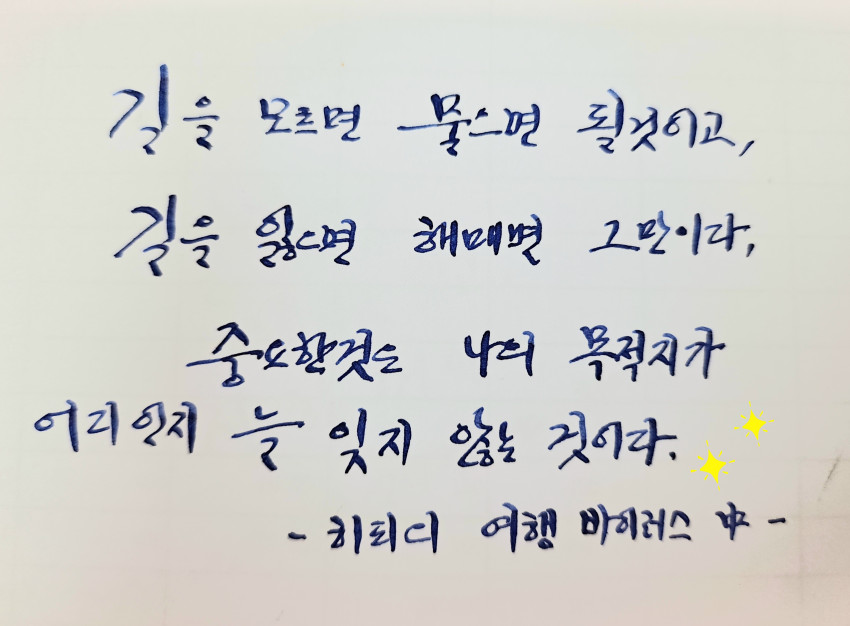 길을 모르면 물으면 될것이고,
길을 잃으면 헤매면 그만이다,
중요한것은 나의 목적지가
어디인지 늘 잊지 않는 것이다.
- 히피디 여행 바이러스 中 -